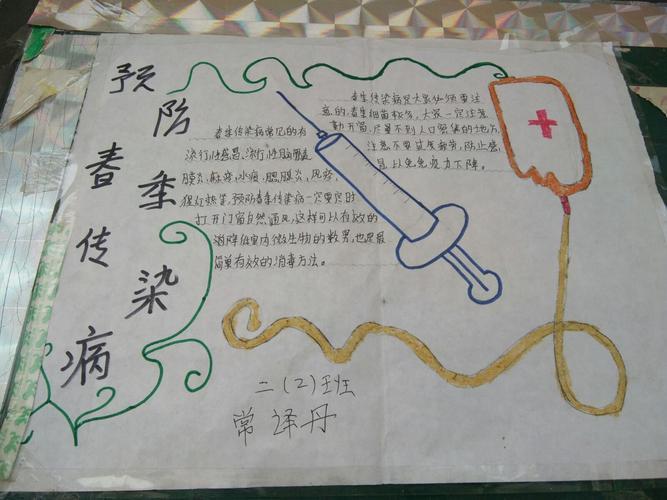 预防春季传染病
春季传染病常见的有
流行性感冒、流行性脑脊髓
膜炎、麻疹、水痘、腮腺炎、风疹、
猩红热等,预防春季传染病一定要定时
打开门窗自然通风,这样可以有效的
降低室内微生物的数量,也是最
简单有效的消毒方法。
春季传染病是大家必须要注
意的,春季细菌较多,大家一定注意
勤开窗,尽量不到人口密集的地方,
注意不要过度疲劳,防止感
冒,以免免疫力下降。
二(2)班
常译丹